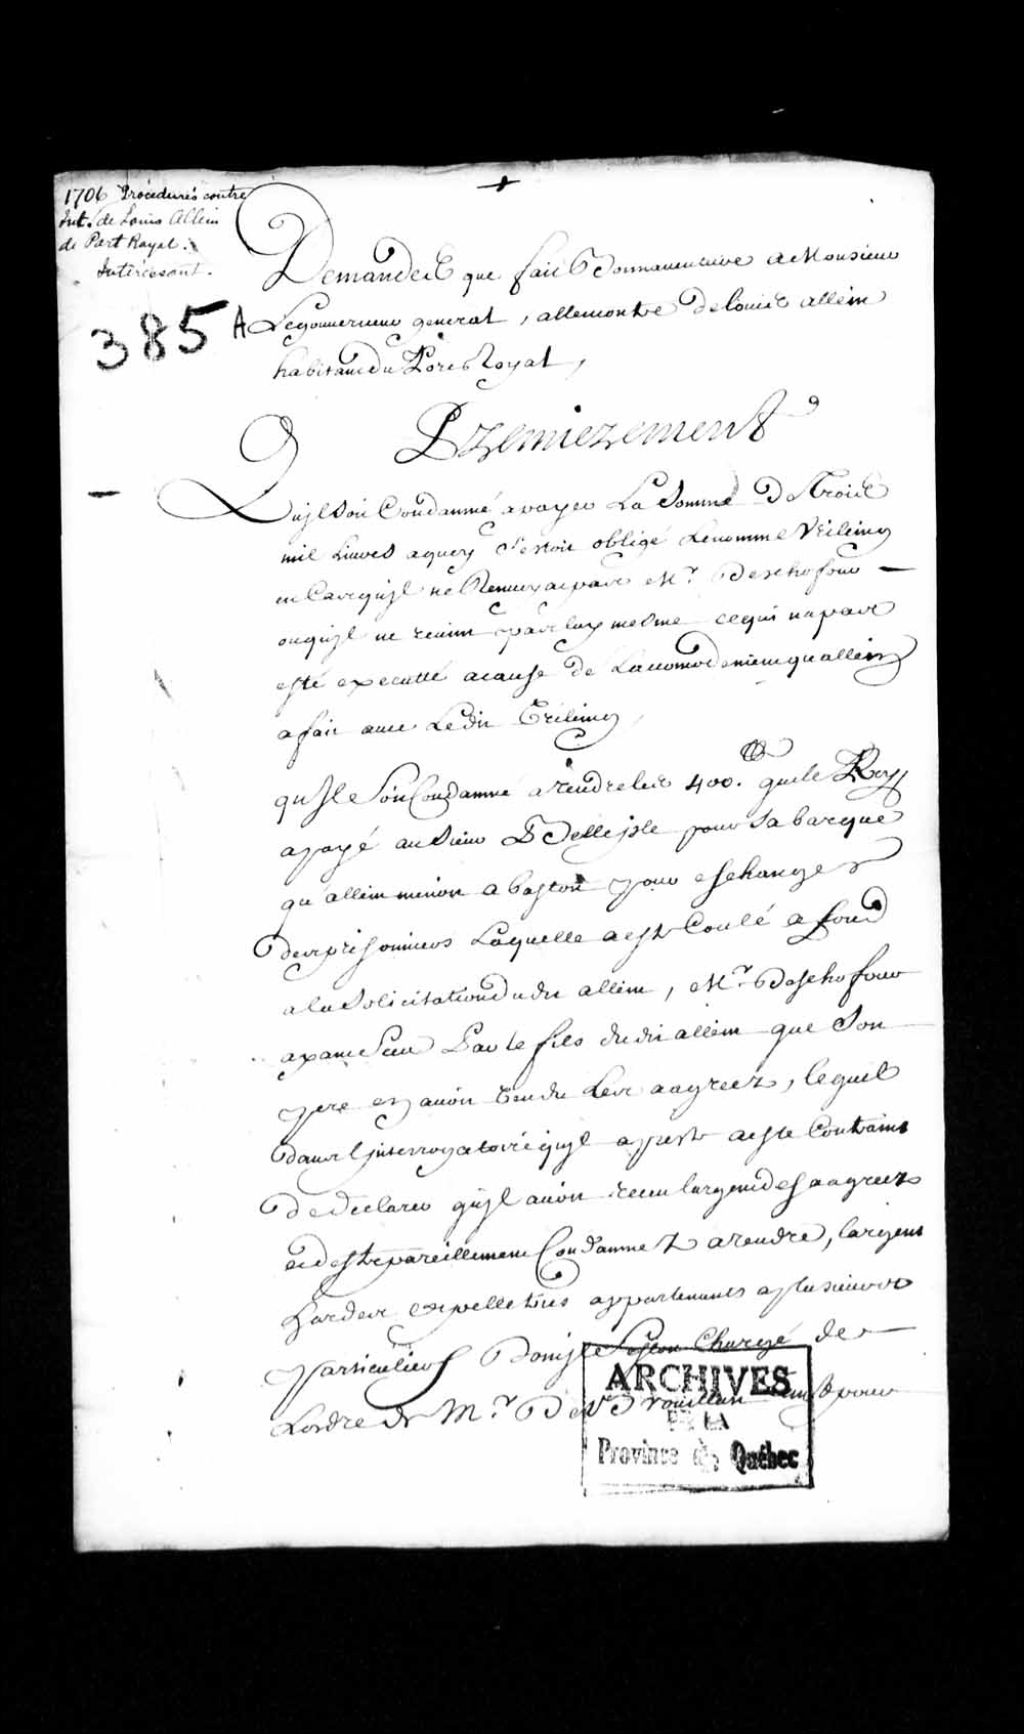 1706 Procédures contre
Int. de Louis Allein
de Port Royal.
Intéressant.
385 A
Demandes que fait Bonnaventure a Monsieur
Le gouverneur general, allemontre de louis allein
habitant du Port Royal,
Premierement
Quil soit Condamné a payer La Somme De Trois
mil Livres a quoy s'estoit obligé Le nomme
en Cas quil ne Renvoyat pas Mr. Deschofour
ou quil ne revint par luy mesme ce qui na pas
esté executté a cause de Lacomodement qu allein
a fait avec Ledit
qu Jl Soit Condamné a rendre les 400. que le Roy
a payé au Sieur De Bellisle pour Sa barque
qu allein menoit a baston pour eschanger
des prisonniers Laquelle a este Coulé a fond
a la Solicitation dudit allein, Mr. Deschofour
ayant Sceu Par le fils dudit allein que Son
pere en avoit vendu Les aagreez, lequel
dans l'interrogatoire quil a preste a este Contraint
De declarer quil avoit receu largent des aagreez
et destre pareillement Condamnez a rendre, largent
hardes et pelletries appartenants a plusieurs
particuliers Dont il Sestoit Chargé de
Lordre de Mr. De Brouillan tant pour
ARCHIVES
DE LA
Province de Québec